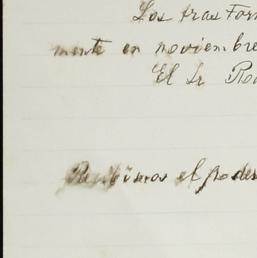 Los tras For
mente en noviembre
El Sr Ro
Recibimos el poder